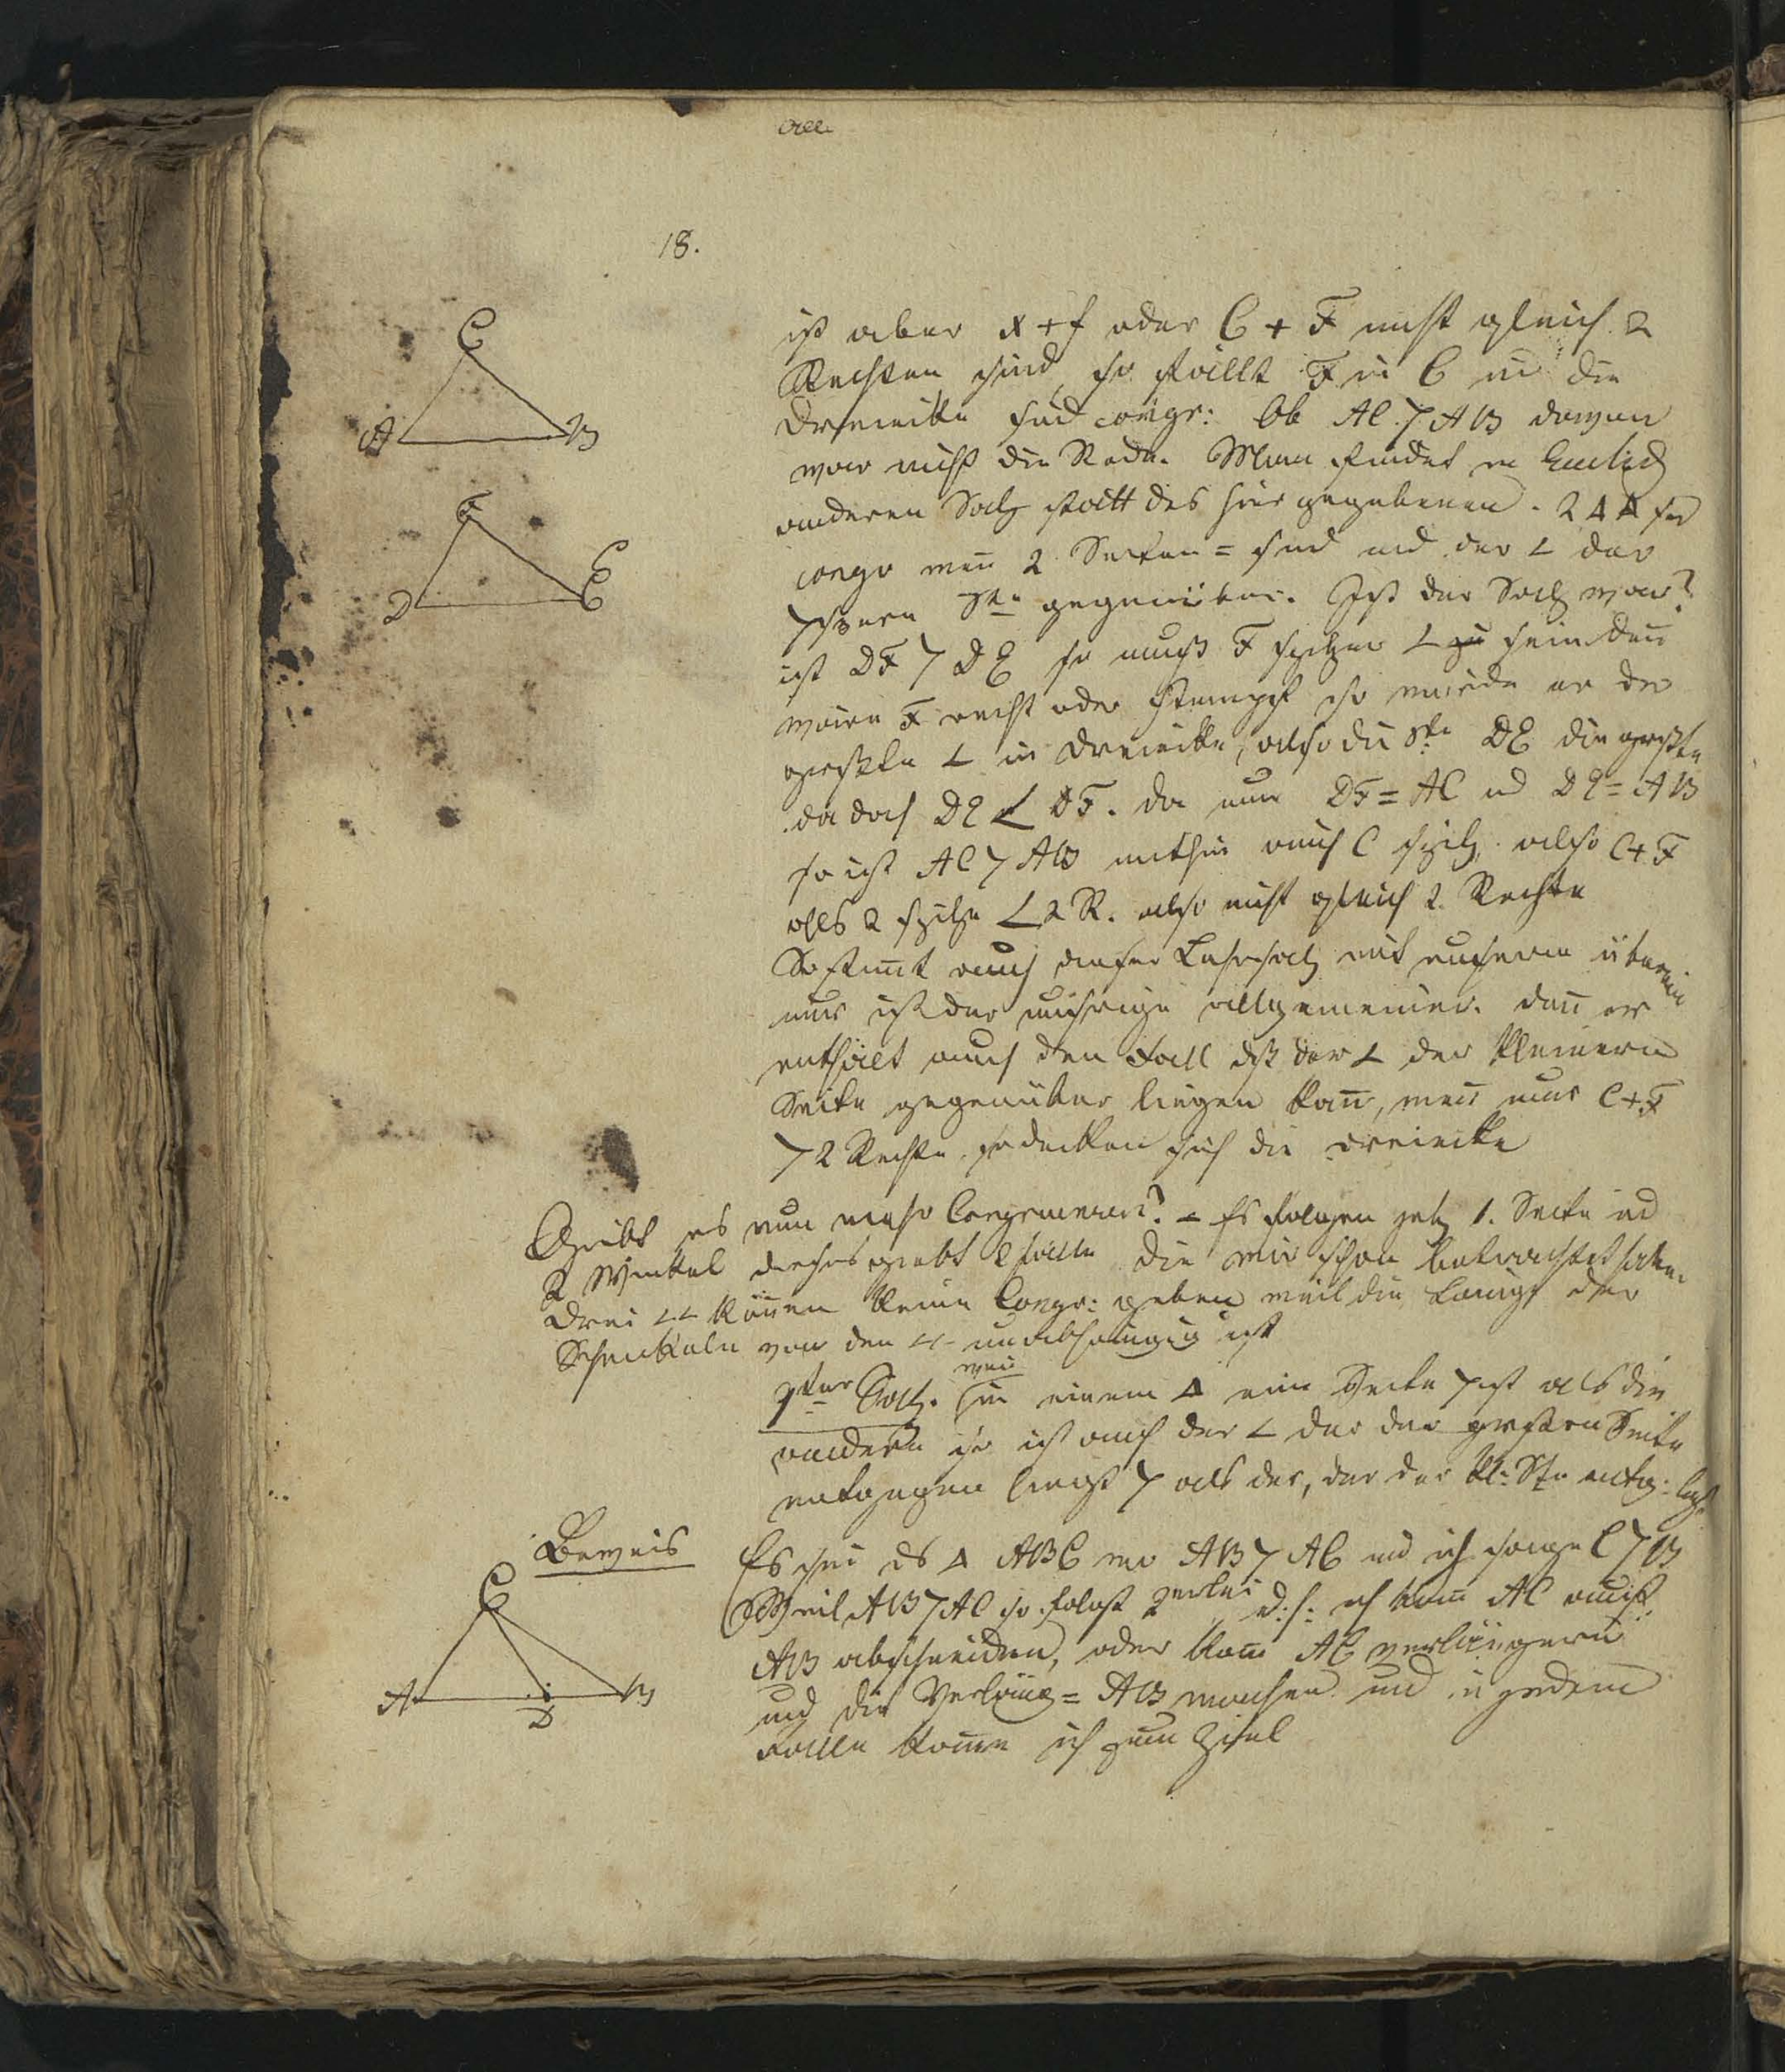 18.
C
A B
F
D E
ist aber x + f oder C + F nicht gleich 2
Rechten sind, so fällt F in C u die
Dreiecke sind congr: Ob AC > AB davon
war nicht die Rede. Man findet in Euclid
anderen Satz statt des hier gegebenen. 2 ∆∆ sd
congr weñ 2 Seiten = sind und der ∠ der
>ßeren Ste gegenüber. Ist der Satz war?
ist DF > DE so muß F spitzer ∠ sein deñ
wäre F recht oder stumpf so würde er der
größte ∠ im Dreiecke, also die Ste DE die größte
da doch DE < DF. da nun DF = AC ud DE = AB
so ist AC > AB mithin auch C spitz, also C + F
als 2 spitze < 2 R. also nicht gleich 2. Rechte
So stim̄t auch dieser Lehrsatz mit unserm überein
nur ist der unsrige allgemeiner. deñ er
enthält auch den Fall dß der ∠ der kleinern
Seite gegenüber liegen kañ, weñ nur C + F
> 2 Rechte, so decken sich die Dreiecke
Giebt es nun mehr ? – Es folgen jetz 1. Seite ud
2 Winkel dieses giebt 2 Fälle die wir schon betrachtet haben
Drei ∠∠ köñen keine Congr: geben weil die Länge der
Schenkeln von den ∠∠ unabhängig ist
Satz. weñ in einem ∆ eine Seite > ist als die
andern so ist auch der ∠ der der größern Seite
entgegen liegt > als der, der der kl: Ste entg: liegt
Beweis
C
A D B
Es sei ds ∆ ABC wo AB > AC und ich sage C > B
Weil AB > AC so folgt 2erlei d: h: ich kañ AC auf
AB abschneiden, oder kañ AC verlängern
und die Verläng = AB machen und in jedem
Falle kom̄e ich zum Ziel